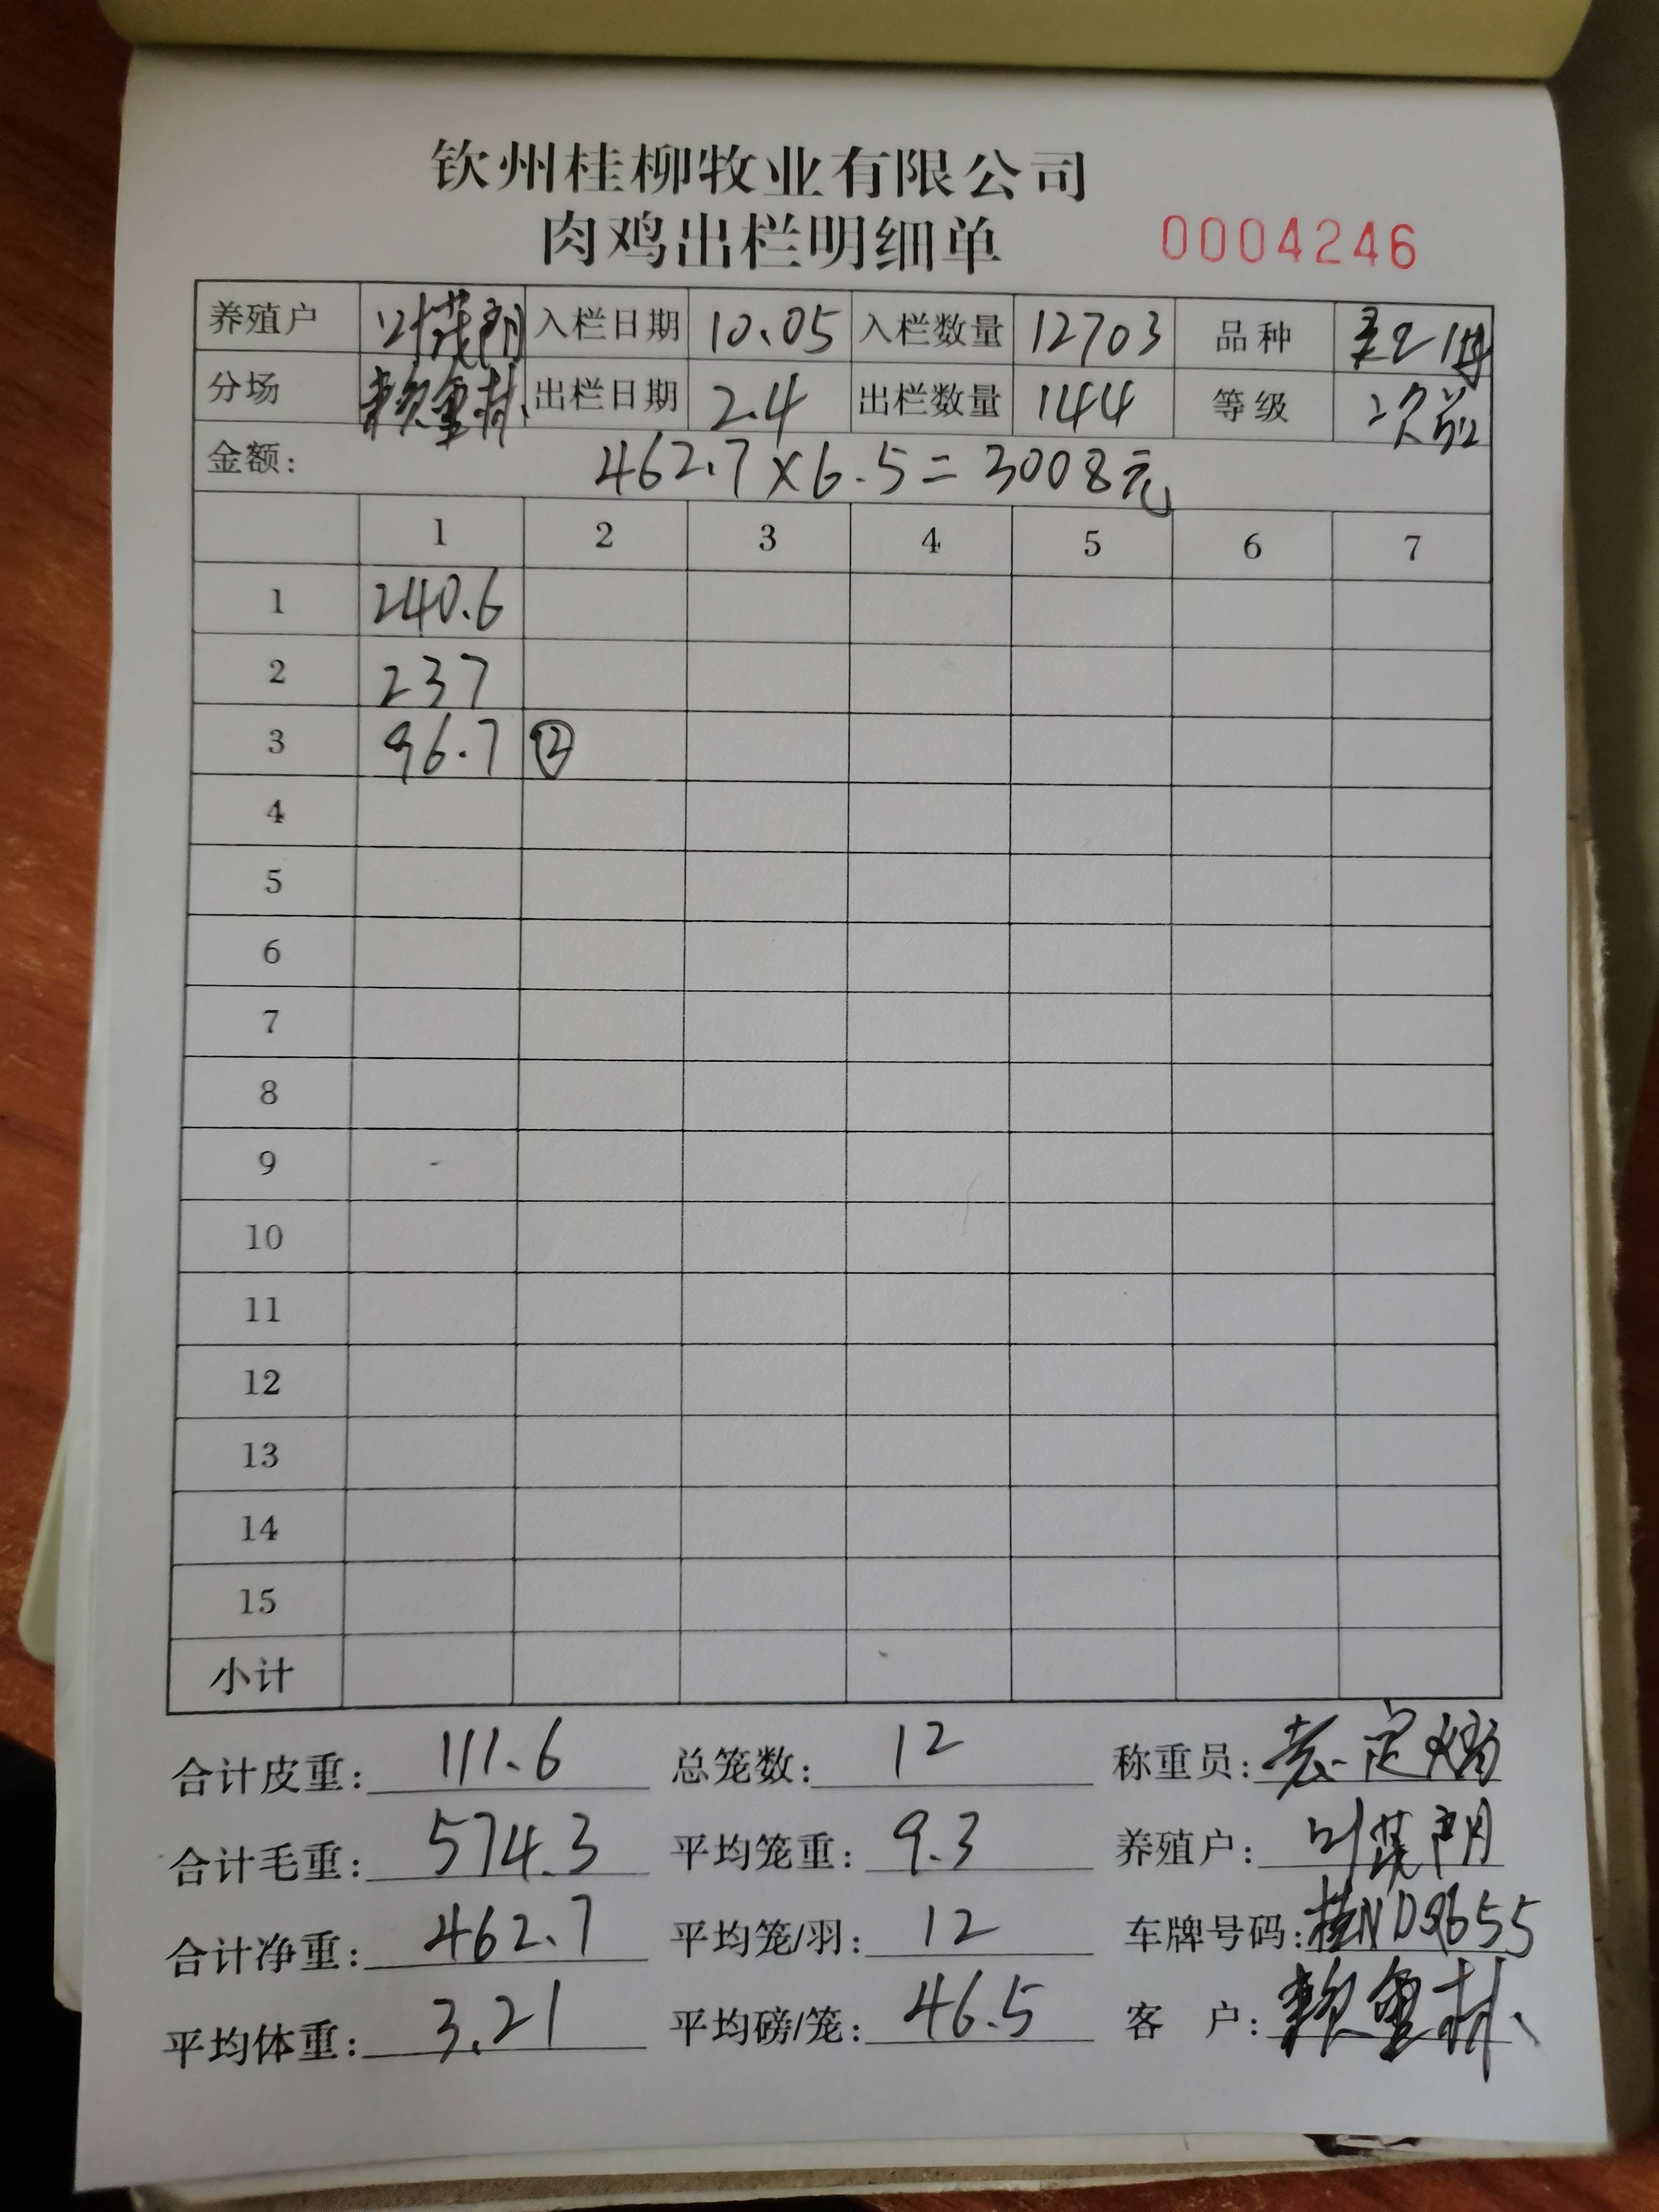 钦州桂柳牧业有限公司
肉鸡出栏明细单 0004246
养殖户 叶茂朗 入栏日期 10.05 入栏数量 12703 品种
分场 出栏日期 2.4 出栏数量 144 等级 次
金额: 462.7×6.5=3008元
1 2 3 4 5 6 7
1 240.6
2 237
3 96.7 ②
4
5
6
7
8
9
10
11
12
13
14
15
小计
合计皮重: 111.6 总笼数: 12 称重员:
合计毛重: 574.3 平均笼重: 9.3 养殖户: 叶茂朗
合计净重: 462.7 平均笼/羽: 12 车牌号码: 桂ND9655
平均体重: 3.21 平均磅/笼: 46.5 客户: